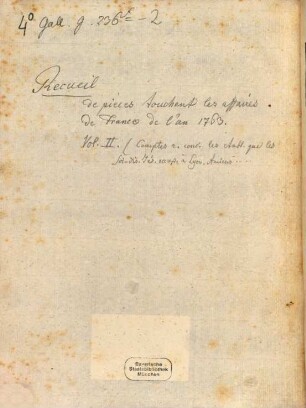 4° Gall. g. 236 - 2
Recueil
de pièces touchant les affaires
de France de l'an 1763.
Vol. II. (Comptes r. conc. les que les
Soi-dis. Jés. à Lyon,
Bayerische
Staatsbibliothek
München